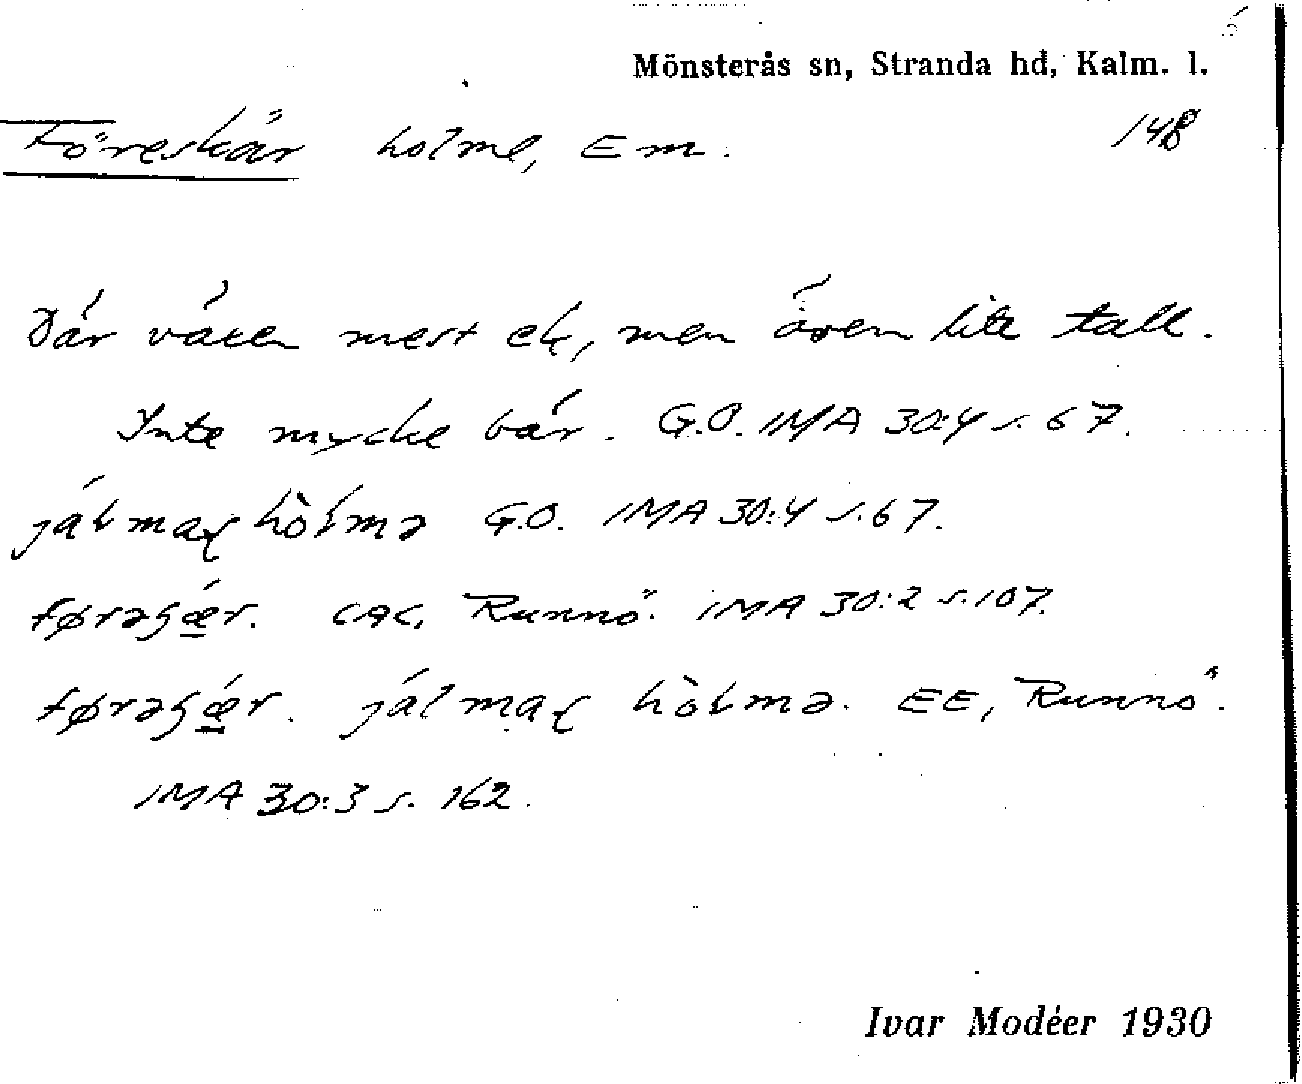 Mönsterås sn, Stranda hd, Kalm. l.
Föreskär holme, Em. 148
Där växer mest ek, men även lite tall.
Inte mycke bär. G.O. IMA 30:4 s. 67.
G.O. IMA 30:4 s. 67.
CAC, Runnö. IMA 30:2 s. 107.
EE, Runnö.
IMA 30:3 s. 162.
Ivar Modéer 1930